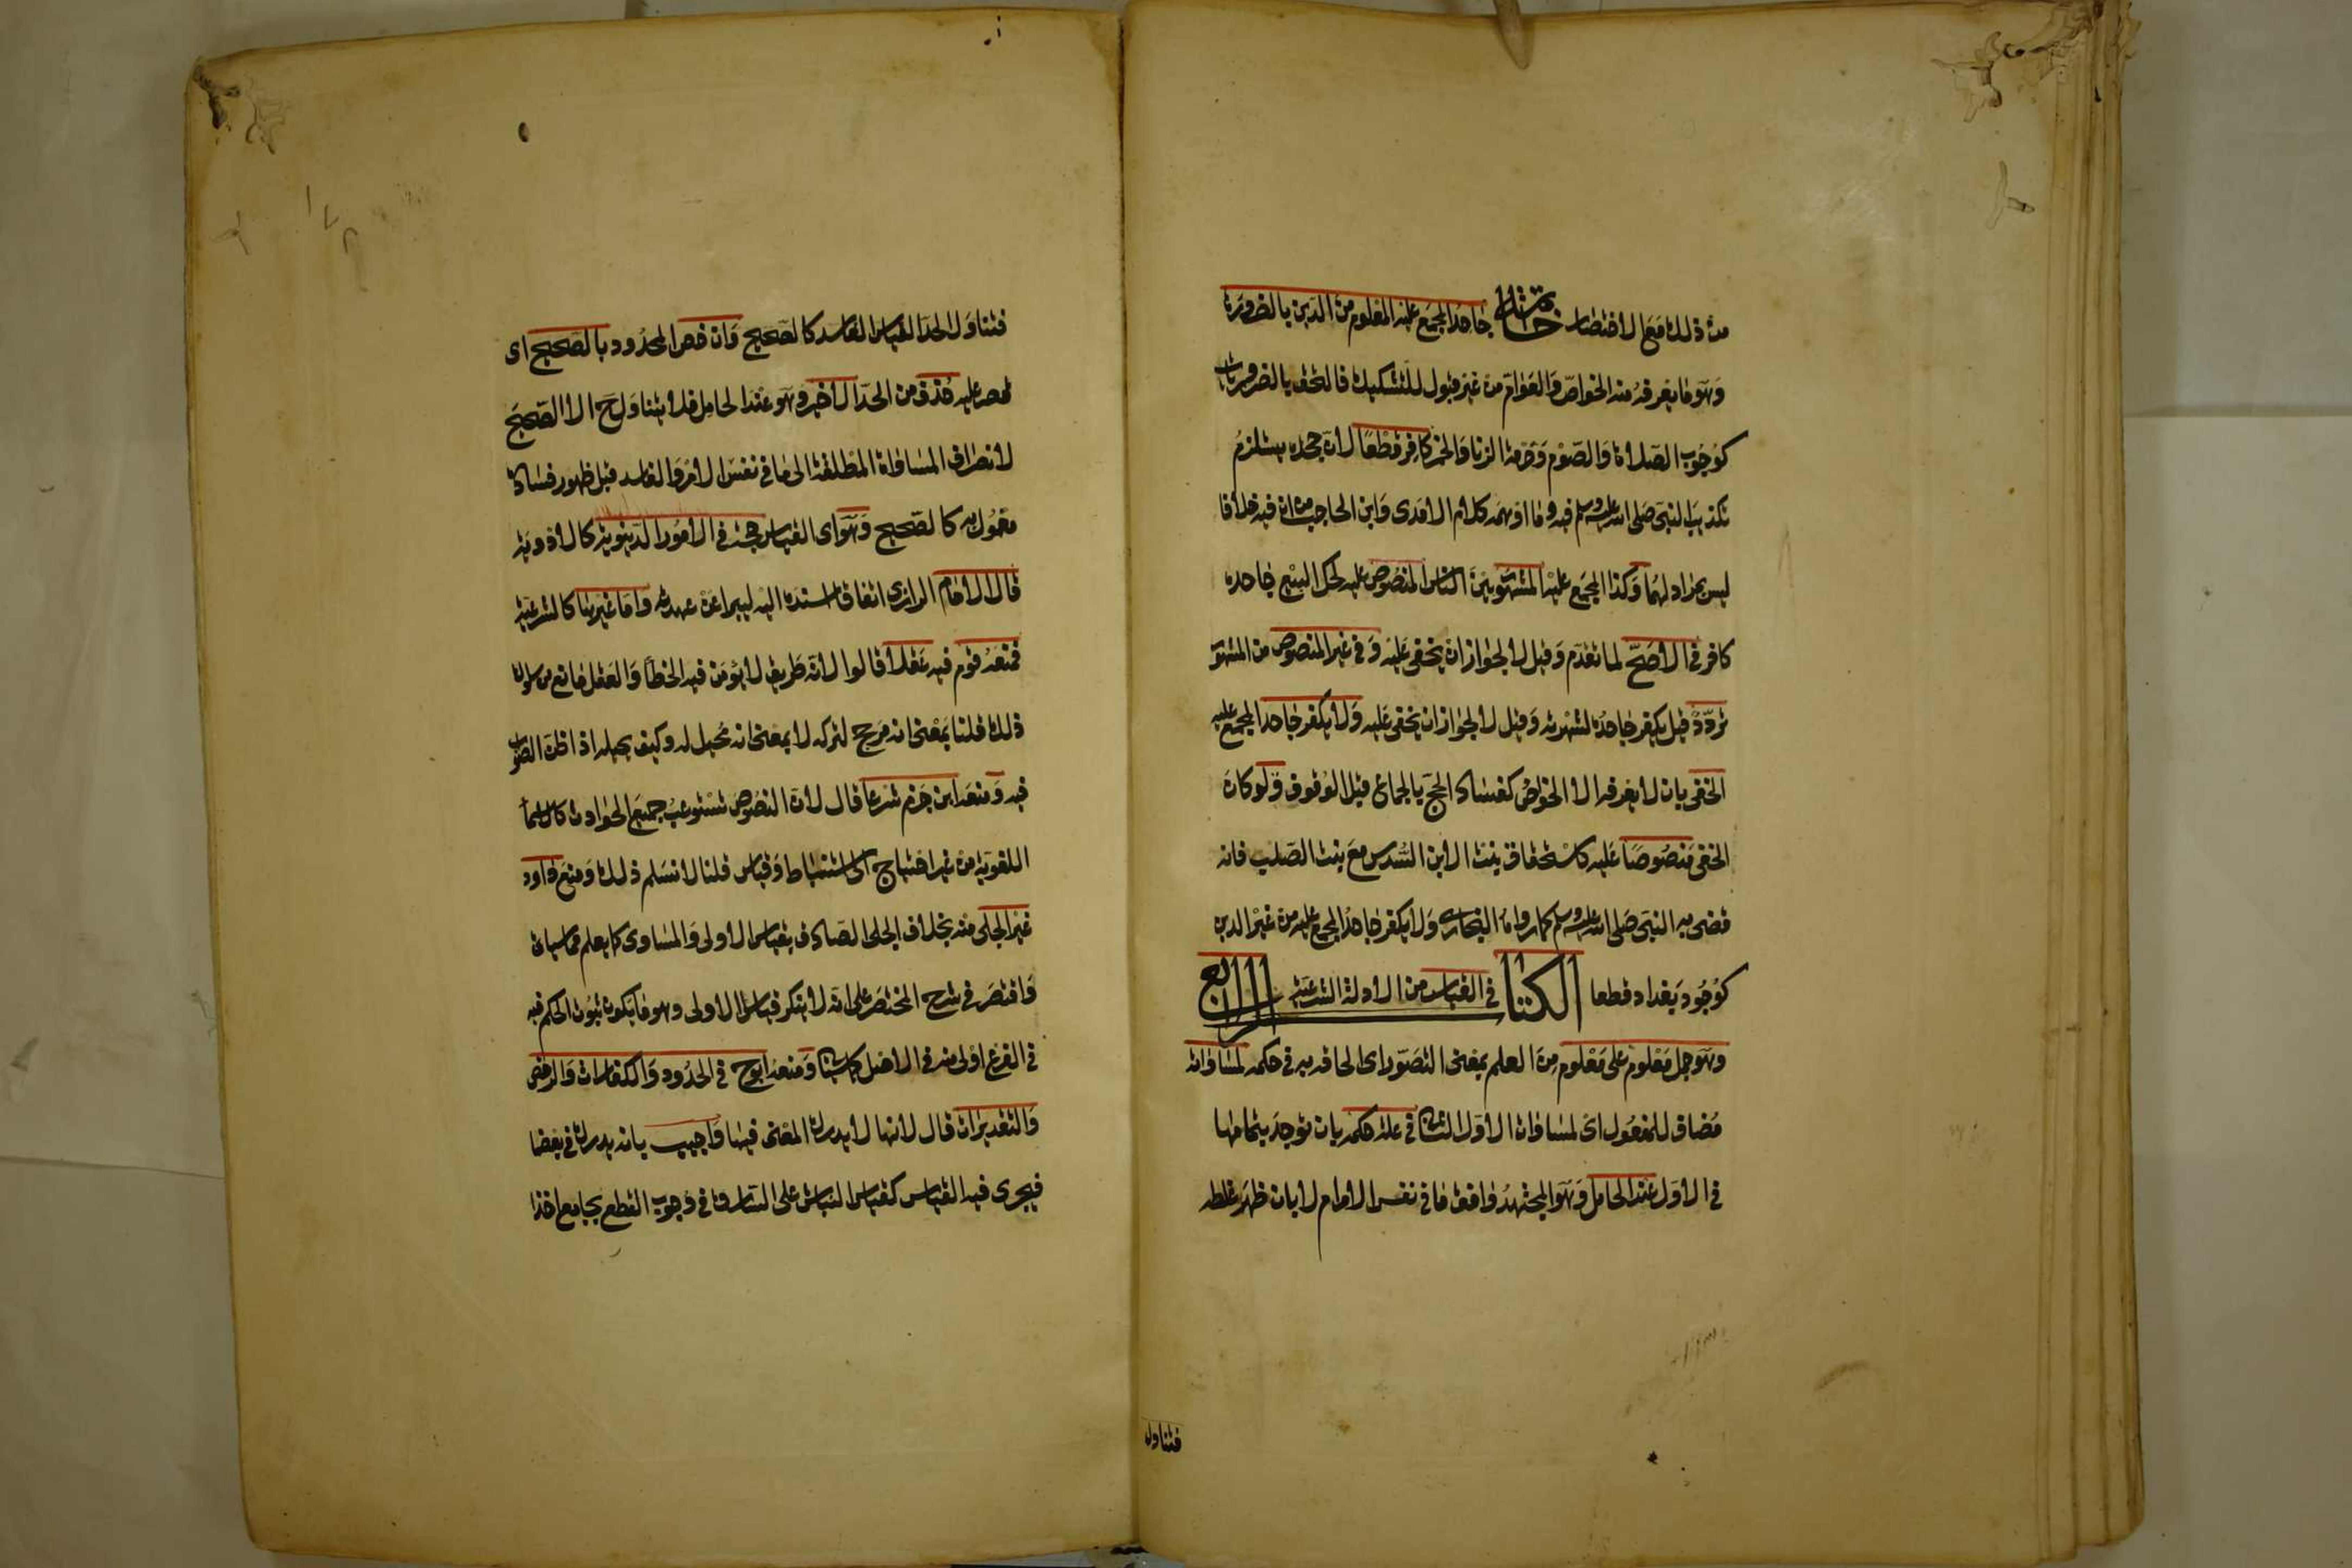 من ذلك مع الاختصار خاتمة جاحد المجمع عليه المعلوم من الدين بالضرورة
وهو ما يعرفه منه الخواص والعوام من غير قبول للتشكيك فالتحق بالضروريات
كوجوب الصلاة والصوم وحرمة الزنا والخمر كافر قطعا لان جحده يستلزم
تكذيب النبي صلى الله عليه وسلم فيه وما اوهمه كلام الامدى وابن الحاجب من ان فيه خلافا
ليس بمراد لهما وكذا المجمع عليه المشهور بين الناس المنصوص عليه كحل البيع جاحده
كافر في الاصح لما تقدم وقيل لا لجواز ان يخفى عليه وفي غير المنصوص من المشهور
تردد قيل يكفر جاحده لشهرته وقيل لا لجواز ان يخفى عليه ولا يكفر جاحد المجمع عليه
الخفى بان لا يعرفه الا الخواص كفساد الحج بالجماع قبل الوقوف ولو كان
الخفى منصوصا عليه كاستحقاق بنت الابن السدس مع بنت الصلب فانه
قضى به النبي صلى الله عليه وسلم كما رواه البخارى ولا يكفر جاحد المجمع عليه من غير الدين
كوجود بغداد قطعا الكتاب الرابع في القياس من الادلة الشرعية
وهو حمل معلوم على معلوم من العلم بمعنى التصور اى الحاقه به في حكمه لمساواته
مضاف للمفعول اى لمساواة الاول الثاني في علة حكمه بان توجد بتمامها
في الاول عند الحامل وهو المجتهد وافق ما في نفس الامر ام لا بان ظهر غلطه
فتناول
فتناول الحد القياس الفاسد كالصحيح وان خص المحدود بالصحيح اى
قصر عليه حذف من الحد الاخير وهو عند الحامل فلا يتناول ح الا الصحيح
لانصراف المساواة المطلقة الى ما في نفس الامر والفاسد قبل ظهور فساده
معمول به كالصحيح وهو اى القياس حجة في الامور الدنيوية كالادوية
قال الامام الرازى اتفاقا اسنده اليه ليبرا عن عهدته واما غيرها كالشرعية
فمنعه قوم فيه عقلا قالوا لانه طريق لا يؤمن فيه الخطأ والعقل مانع من سلوك
ذلك قلنا بمعنى انه مرجح لتركه لا بمعنى انه محيل له وكيف يحيله اذا ظن الصواب
فيه ومنعه ابن حزم شرعا قال لان النصوص تستوعب جميع الحوادث بالاسماء
اللغوية من غير احتياج الى استنباط وقياس قلنا لا نسلم ذلك ومنع داود
غير الجلى منه بخلاف الجلى الصادق بقياس الاولى والمساوى كما يعلم مما سيأتى
واقتصر في شرح المختصر على انه لا ينكر قياس الاولى وهو ما يكون ثبوت الحكم فيه
في الفرع اولى منه في الاصل كما سيأتى ومنعه ابو ح في الحدود والكفارات والرخص
والتقديرات قال لانها لا يدرك المعنى فيها واجيب بانه يدرك في بعضها
فيجرى فيه القياس كقياس النباش على السارق في وجوب القطع بجامع اخذ